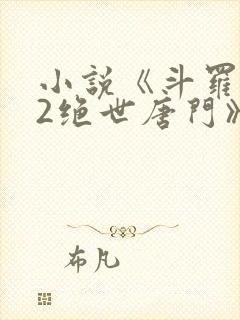 小説《斗羅
2绝世唐門》
布凡